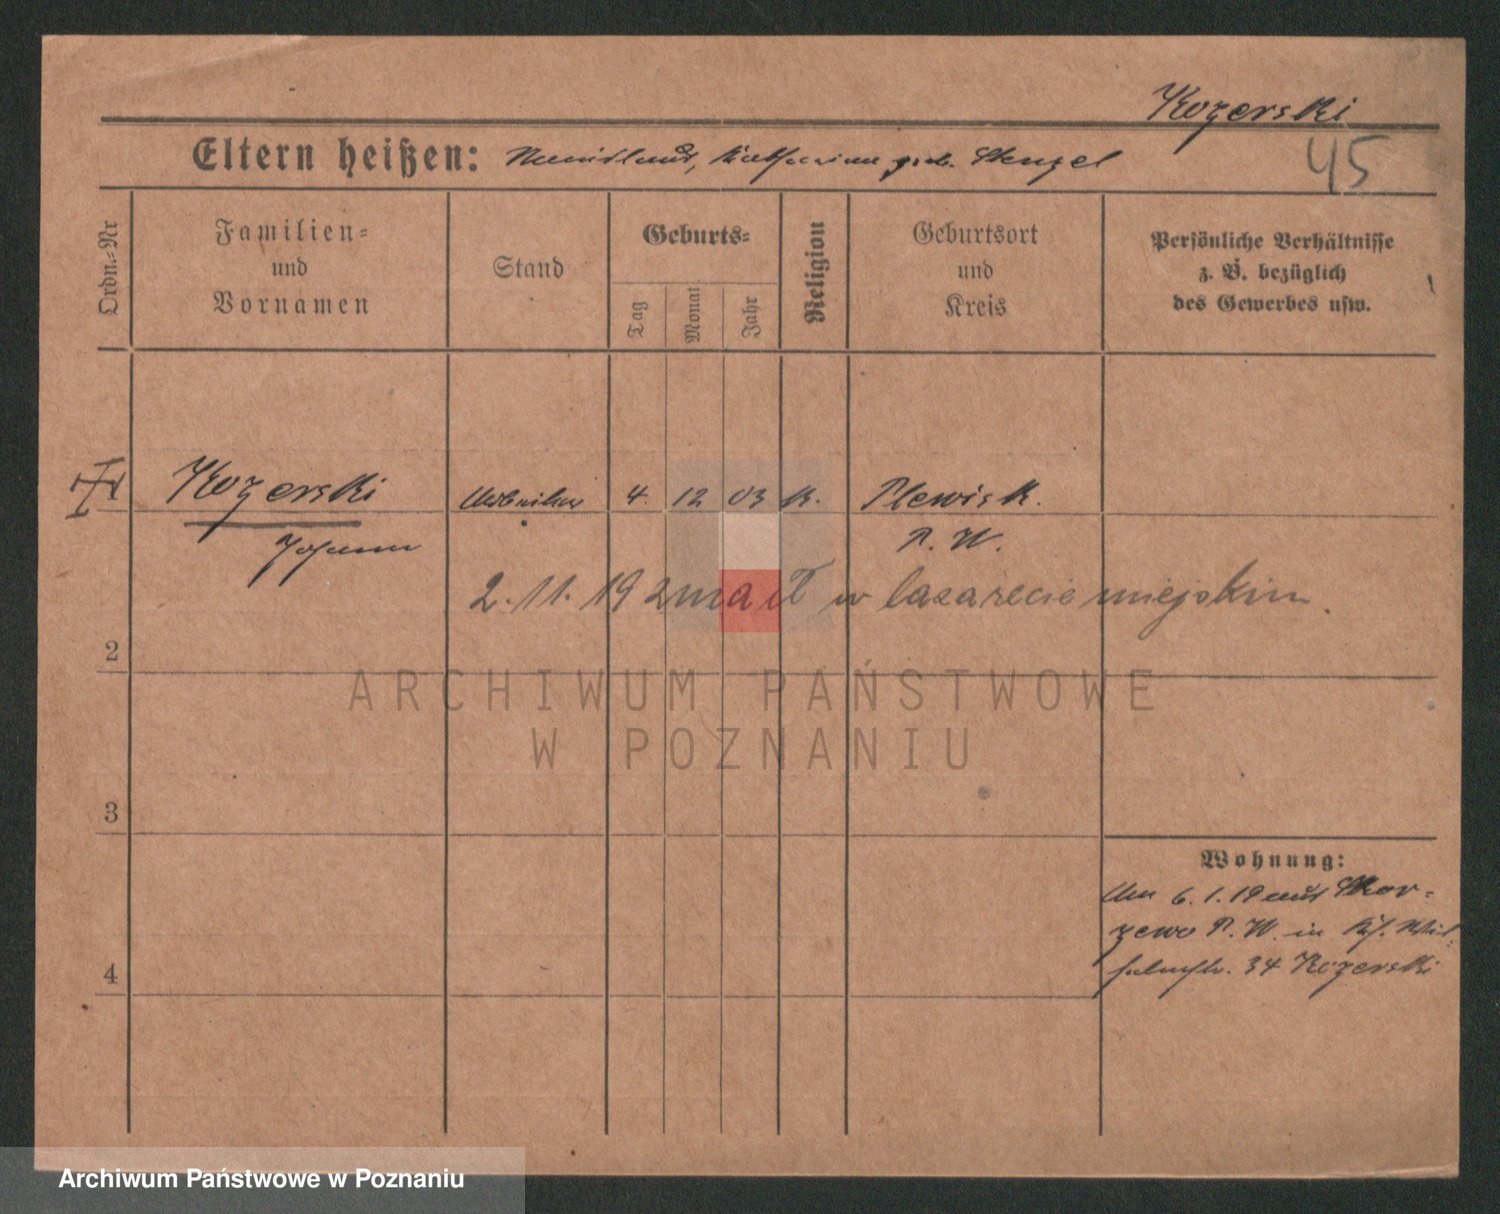 Kozerski
Eltern heißen: Stanislaus, Katharina geb. Stenzel
45
Ordn.-Nr
Familien-
und
Vornamen
Stand
Geburts-
Tag
Monat
Jahr
Religion
Geburtsort
und
Kreis
Persönliche Verhältnisse
z. B. bezüglich
des Gewerbes usw.
Kozerski
Arbeiter 4. 12 03 K. Plewisk.
Johann
P. W.
2. 11. 19 zmarł w lazarecie miejskim.
2
ARCHIWUM PAŃSTWOWE
W POZNANIU
3
Wohnung:
Am 6. 1. 19 aus Skor-
zewo P. W. in
34 Kozerski
4
Archiwum Państwowe w Poznaniu